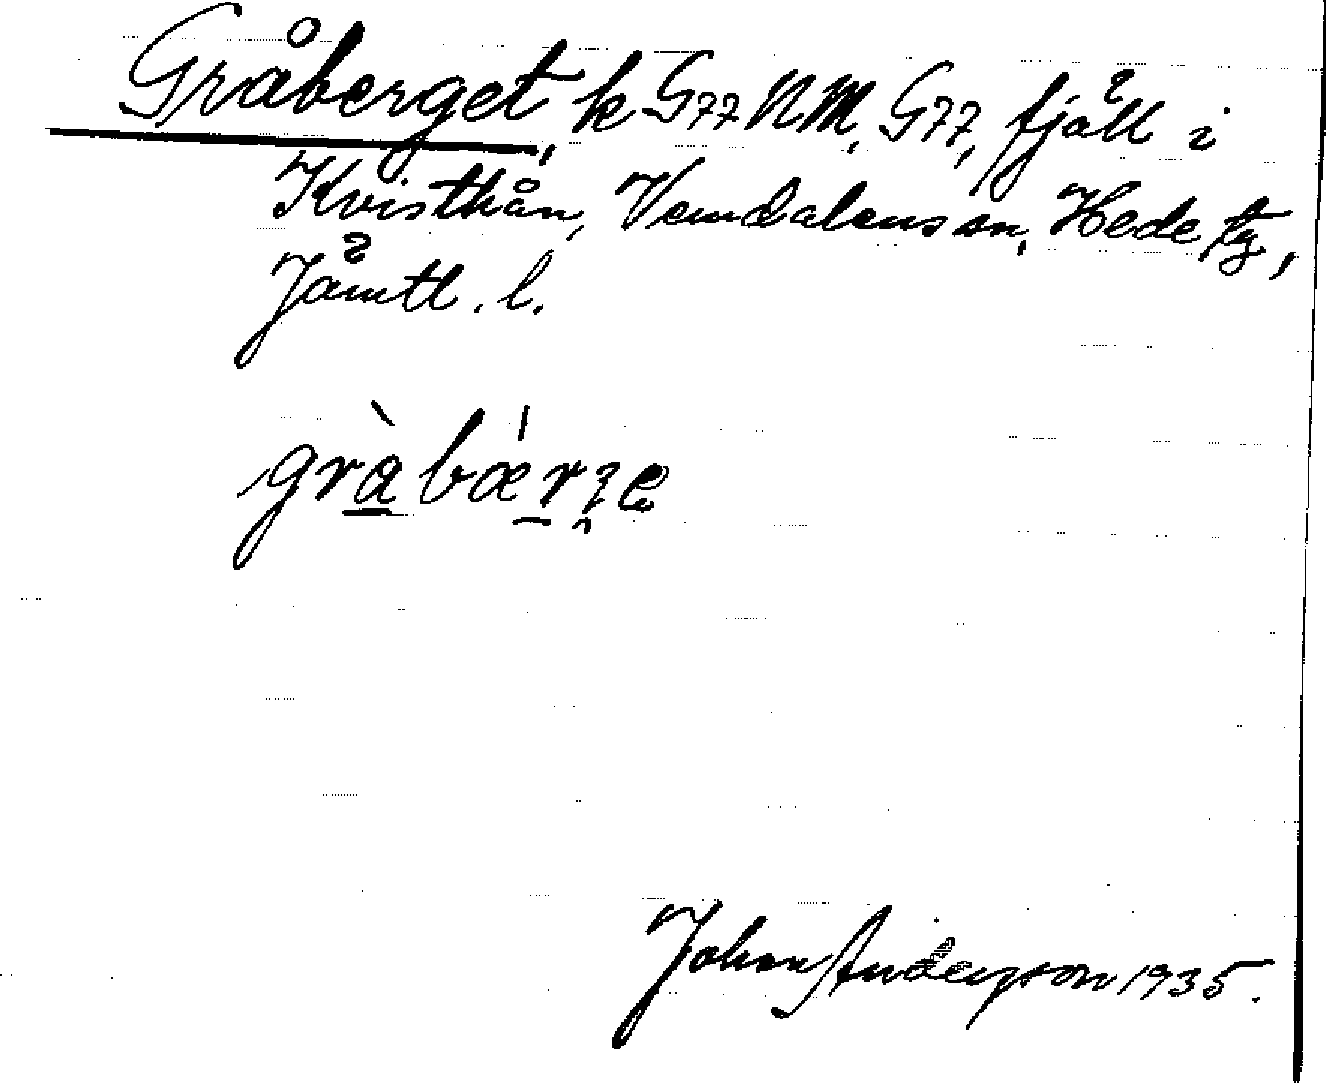 Gråberget, k G77 NM, G77, fjäll i
Kvisthån, Vemdalens sn, Hede tg,
Jämtl. l.
gràbǽrʒe
Johan Anderson 1935.